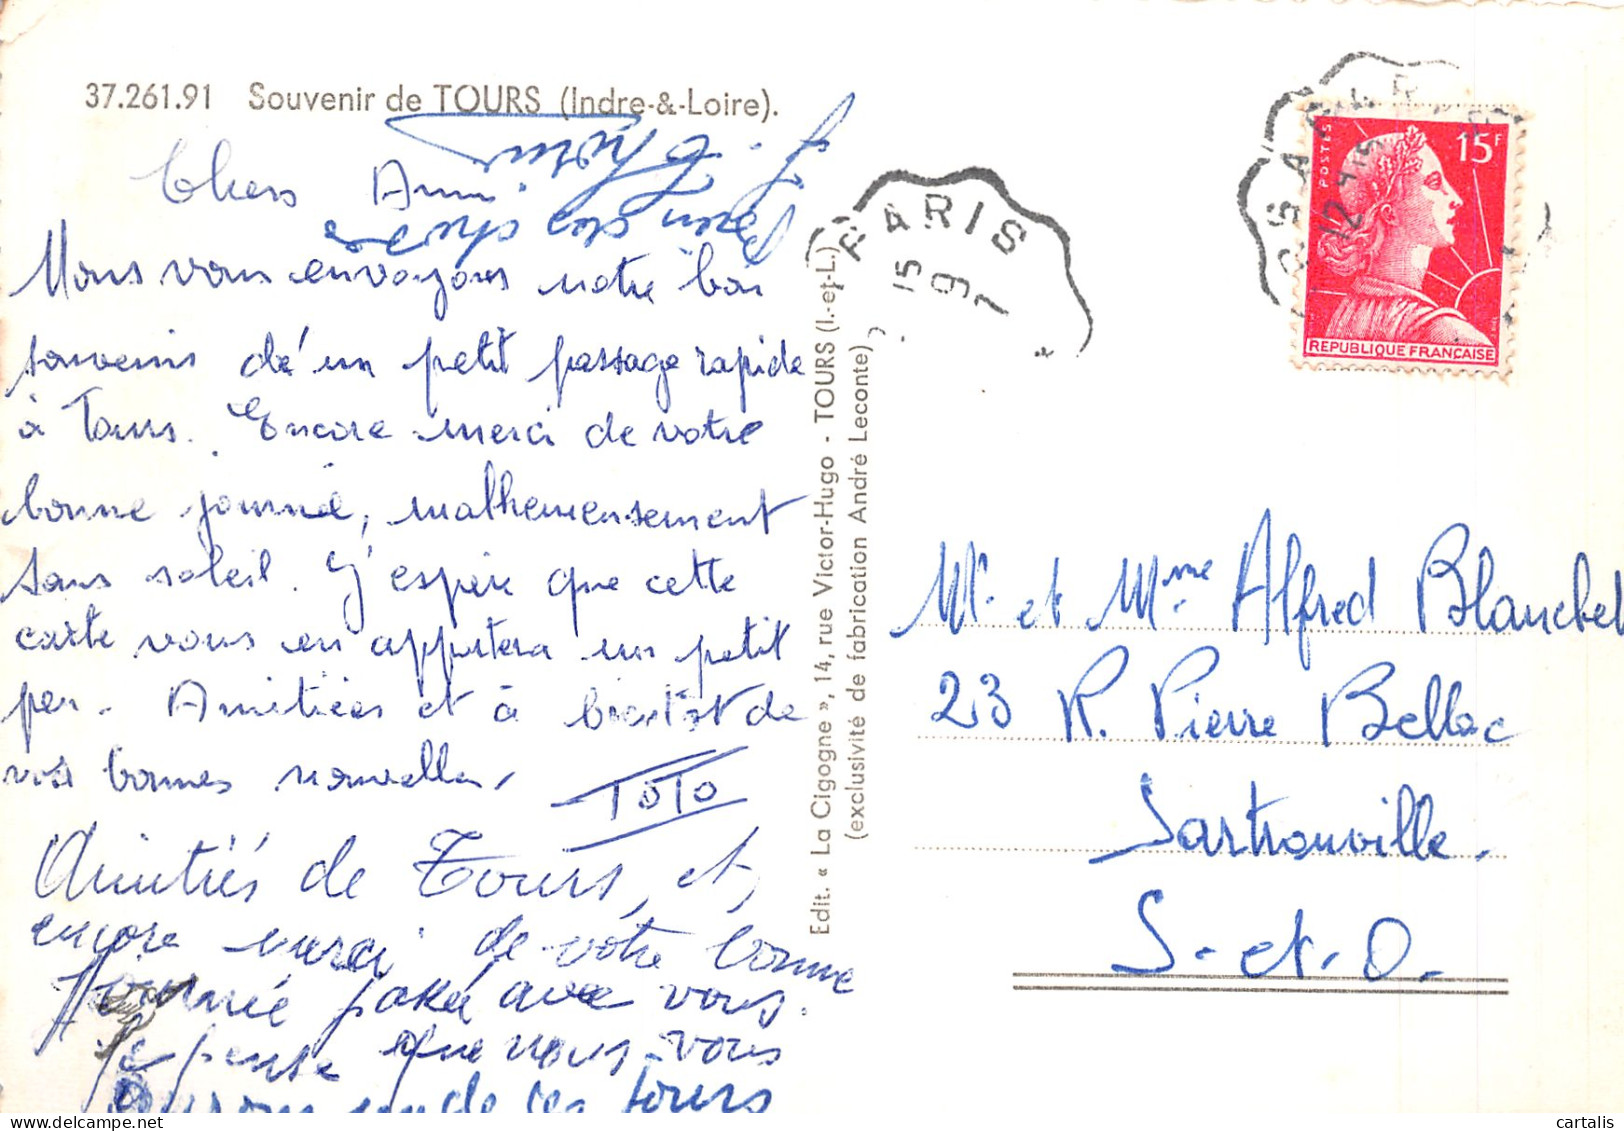 37.261.91 Souvenir de TOURS (Indre-&-Loire).
Chers Amis
Nous vous envoyons notre bon
souvenir de d'un petit passage rapide
à Tours. Encore merci de votre
bonne journée, malheureusement
sans soleil. J'espère que cette
carte vous en apportera un petit
peu. Amitiées et à bientôt de
vos bonnes nouvelles.
TOTO
Amitiés de Tours, et
encore merci de votre bonne
journée passée avec vous.
Je pense que nous vous
un de ces jours
Bien des choses
Edit. « La Cigogne », 14, rue Victor-Hugo - TOURS (I.-et-L.)
(exclusivité de fabrication André Leconte)
PARIS
15
9
POSTES
15F
REPUBLIQUE FRANÇAISE
Mr et Mme Alfred Blanchet
23 R. Pierre Belloc
Sartrouville.
S.-et-O.